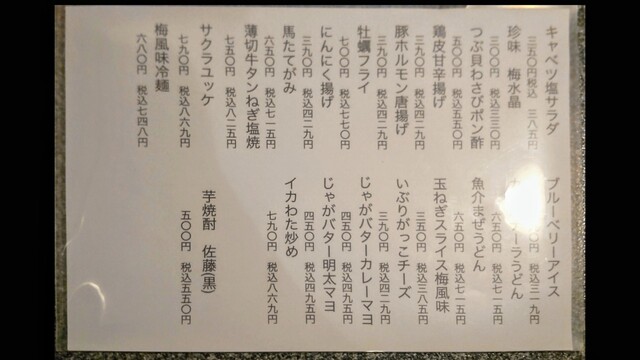 キャベツ塩サラダ
三五〇円 税込 三八五円
珍味 梅水晶
三〇〇円 税込三三〇円
つぶ貝わさびポン酢
五〇〇円 税込五五〇円
鶏皮甘辛揚げ
三九〇円 税込四二九円
豚ホルモン唐揚げ
三九〇円 税込四二九円
牡蠣フライ
七〇〇円 税込七七〇円
にんにく揚げ
三九〇円 税込四二九円
馬たてがみ
六五〇円 税込七一五円
薄切牛タンねぎ塩焼
七五〇円 税込八二五円
サクラユッケ
七九〇円 税込八六九円
梅風味冷麺
六八〇円 税込七四八円
ブルーベリーアイス
〇円 税込三一九円
ーラうどん
六五〇円 税込七一五円
魚介まぜうどん
六五〇円 税込七一五円
玉ねぎスライス梅風味
三五〇円 税込三八五円
いぶりがっこチーズ
三九〇円 税込四二九円
じゃがバターカレーマヨ
四五〇円 税込四九五円
じゃがバター明太マヨ
四五〇円 税込四九五円
イカわた炒め
七九〇円 税込八六九円
芋焼酎 佐藤(黒)
五〇〇円 税込五五〇円